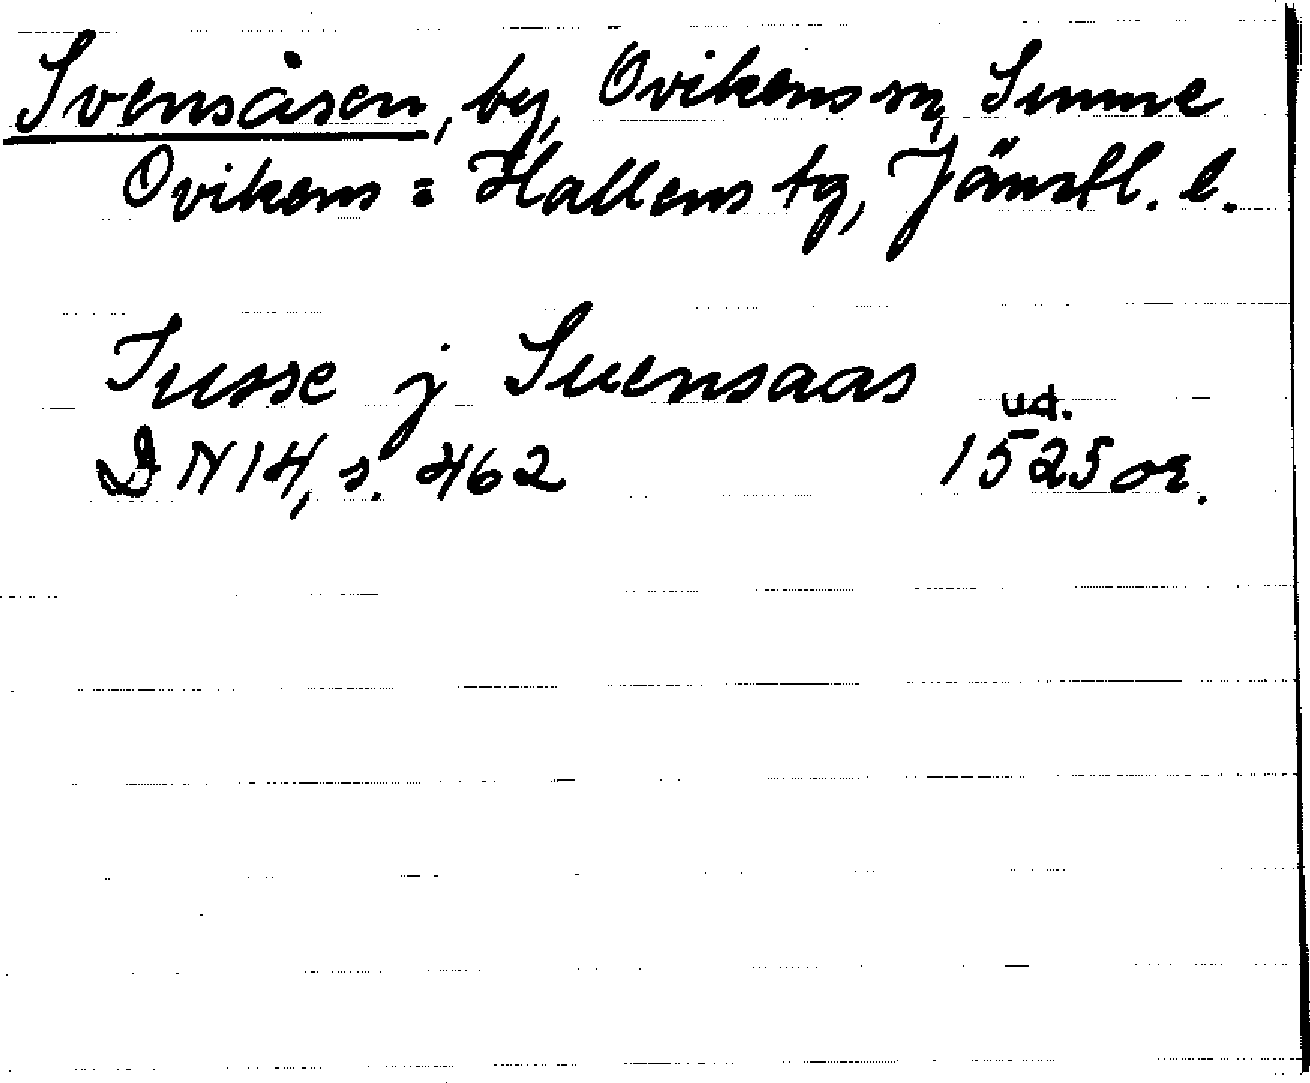 Svensåsen, by, Ovikens sn, Sunne
Ovikens = Hallens tg, Jämtl. l.
Jusse j Suensaas
ud.
DN 14, s. 462 1525 or.